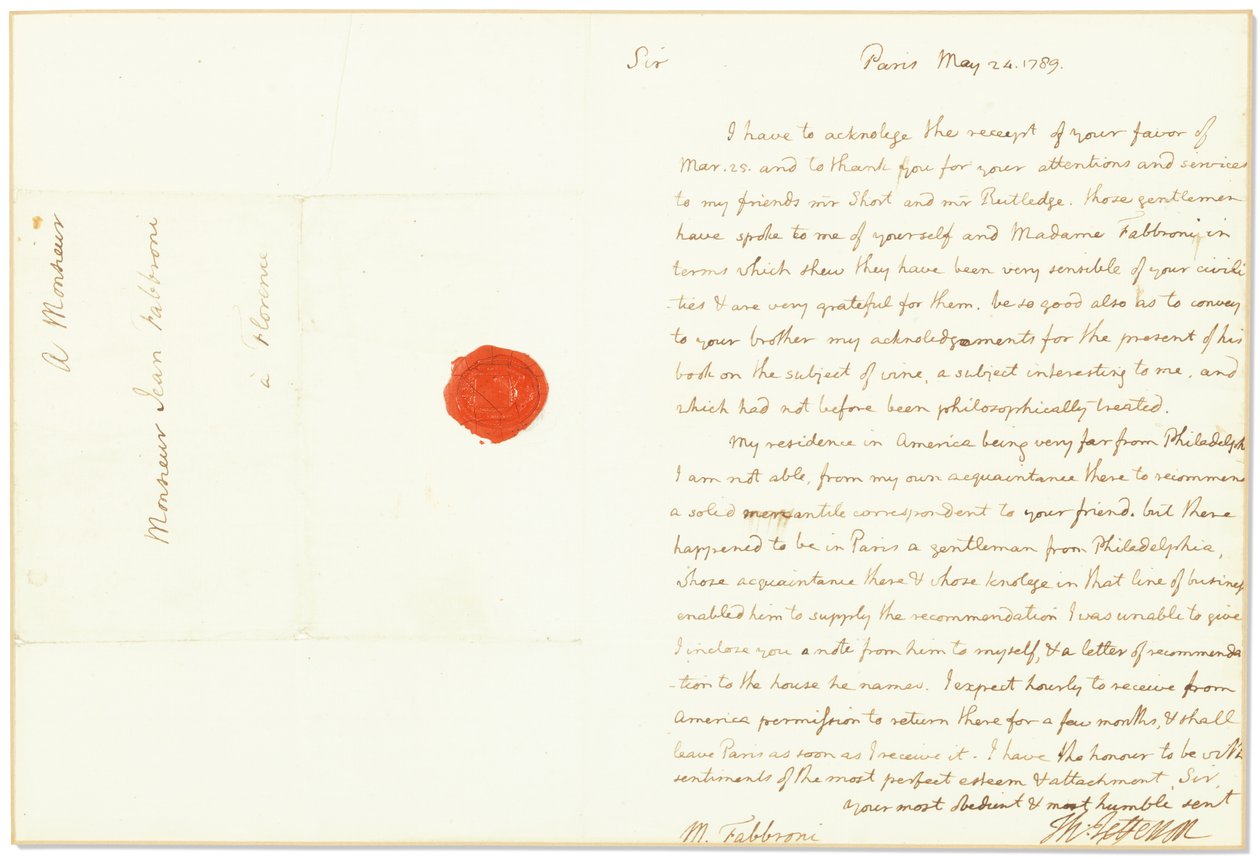 A Monsieur
Monsieur Jean Fabbroni
à Florence
Sir Paris May 24. 1789.
I have to acknolege the receipt of your favor of
Mar. 25. and to thank you for your attentions and services
to my friends mr Short and mr Rutledge. those gentlemen
have spoke to me of yourself and Madame Fabbroni in
terms which shew they have been very sensible of your civili
-ties & are very grateful for them. be so good also as to convey
to your brother my acknoledgements for the present of his
book on the subject of vine, a subject interesting to me, and
which had not before been philosophically treated.
My residence in America being very far from Philadelph
I am not able, from my own acquaintance there to recommen
a solid mercantile correspondent to your friend. but there
happened to be in Paris a gentleman from Philadelphia,
whose acquaintance there & whose knolege in that line of business
enabled him to supply the recommendation I was unable to give
I inclose you a note from him to myself, & a letter of recommenda
-tion to the house he names. I expect hourly to receive from
America permission to return there for a few months, & shall
leave Paris as soon as I receive it. I have the honour to be with
sentiments of the most perfect esteem & attachment, Sir,
your most obedient & most humble servt
M. Fabbroni Th: Jefferson